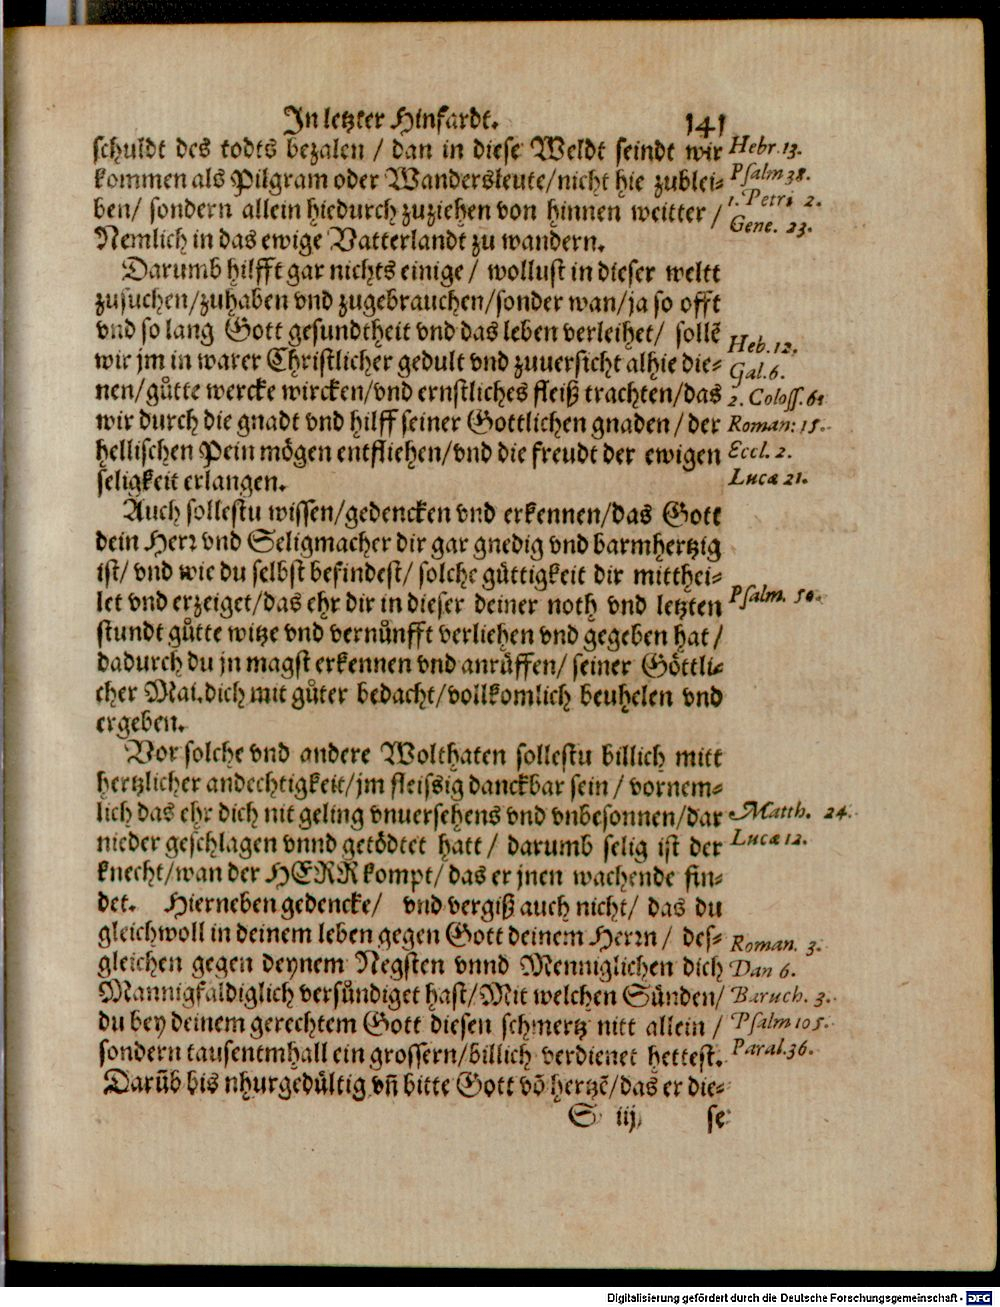 In letzter Hinfardt. 141
schuldt des todts bezalen / dan in diese Weldt seindt wir
kommen als Pilgram oder Wandersleute/nicht hie zublei⸗
ben/ sondern allein hiedurch zuziehen von hinnen weitter /
Nemlich in das ewige Vatterlandt zu wandern.
Hebr. 13.
Psalm 38.
1. Petri 2.
Gene. 23.
Darumb hilfft gar nichts einige / wollust in dieser weltt
zusuchen/zuhaben vnd zugebrauchen/sonder wan/ja so offt
vnd so lang Gott gesundtheit vnd das leben verleihet/ sollẽ
wir jm in warer Christlicher gedult vnd zuuersicht alhie die⸗
nen/gůtte wercke wircken/vnd ernstliches fleiß trachten/das
wir durch die gnadt vnd hilff seiner Gottlichen gnaden / der
hellischen Pein mögen entfliehen/vnd die freudt der ewigen
seligkeit erlangen.
Heb. 12.
Gal. 6.
2. Coloss. 61
Roman: 15.
Eccl. 2.
Lucæ 21.
Auch sollestu wissen/gedencken vnd erkennen/das Gott
dein Herr vnd Seligmacher dir gar gnedig vnd barmhertzig
ist/ vnd wie du selbst befindest/ solche gůttigkeit dir mitthei⸗
let vnd erzeiget/das ehr dir in dieser deiner noth vnd letzten
stundt gůtte witze vnd vernůnfft verliehen vnd gegeben hat /
dadurch du jn magst erkennen vnd anrůffen/ seiner Göttli⸗
cher Mai. dich mit gůter bedacht/vollkomlich beuhelen vnd
ergeben.
Psalm. 50.
Vor solche vnd andere Wolthaten sollestu billich mitt
hertzlicher andechtigkeit/jm fleissig danckbar sein / vornem⸗
lich das ehr dich nit geling vnuersehens vnd vnbesonnen/dar
nieder geschlagen vnnd getödtet hatt / darumb selig ist der
knecht/wan der HERR kompt/ das er jnen wachende fin⸗
det. Hierneben gedencke/ vnd vergiß auch nicht/ das du
gleichwoll in deinem leben gegen Gott deinem Herrn / des⸗
gleichen gegen deynem Negsten vnnd Menniglichen dich
Mannigfaldiglich versůndiget hast/Mit welchen Sünden/
du bey deinem gerechtem Gott diesen schmertz nitt allein /
sondern tausentmhall ein grossern/billich verdienet hettest.
Darũb bis nhur gedůltig vñ bitte Gott võ hertzẽ/das er die⸗
Matth. 24.
Lucæ 12.
Roman. 3.
Dan 6.
Baruch. 3.
Psalm 105.
Paral. 36.
S iij se
Digitalisierung gefördert durch die Deutsche Forschungsgemeinschaft - DFG